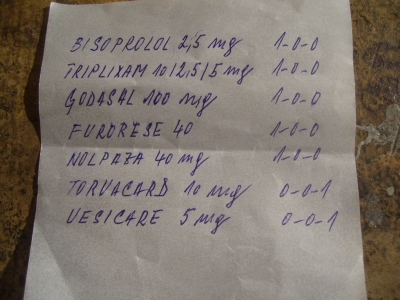 BISOPROLOL 2,5 mg 1-0-0
TRIPLIXAM 10/2,5/5 mg 1-0-0
GODASAL 100 mg 1-0-0
FURORESE 40 1-0-0
NOLPAZA 40 mg 1-0-0
TORVACARD 10 mg 0-0-1
VESICARE 5 mg 0-0-1